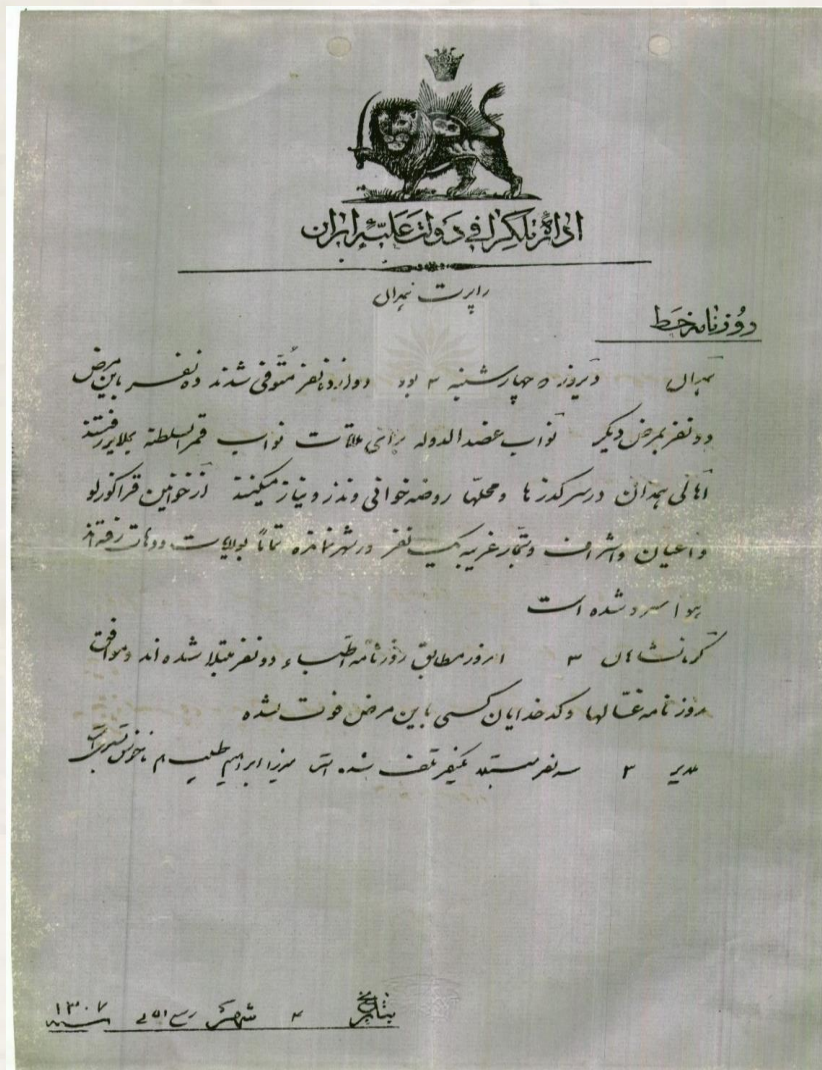 اداره تلگرافی دولت علیه ایران
راپرت همدان
روزنامه خط
همدان دیروز که چهارشنبه ۳ بود دوازده نفر متوفی شدند ده نفر باین مرض
دو نفر بمرض دیگر نواب عضدالدوله برای ملاقات نواب قمرالسلطنه بملایر رفتند
اهالی همدان در سر گذرها و محلها روضه خوانی و نذر و نیاز میکنند از خوانین قراگوزلو
و اعیان و اشراف و تجار غریبه یک نفر در شهر نمانده تماماً بولایات و دهات رفته‌اند
هوا سرد شده است
کرمانشاهان ۳ امروز مطابق روزنامه اطباء دو نفر مبتلا شده اند و موافق
روزنامه غسالها و کدخدایان کسی باین مرض فوت نشده
ملایر ۳ سه نفر مبتلا یکنفر تلف شده است میرزا ابراهیم طبیب هم ناخوش
بتاریخ ۴ شهر ربیع الاول سنه ۱۳۰۷